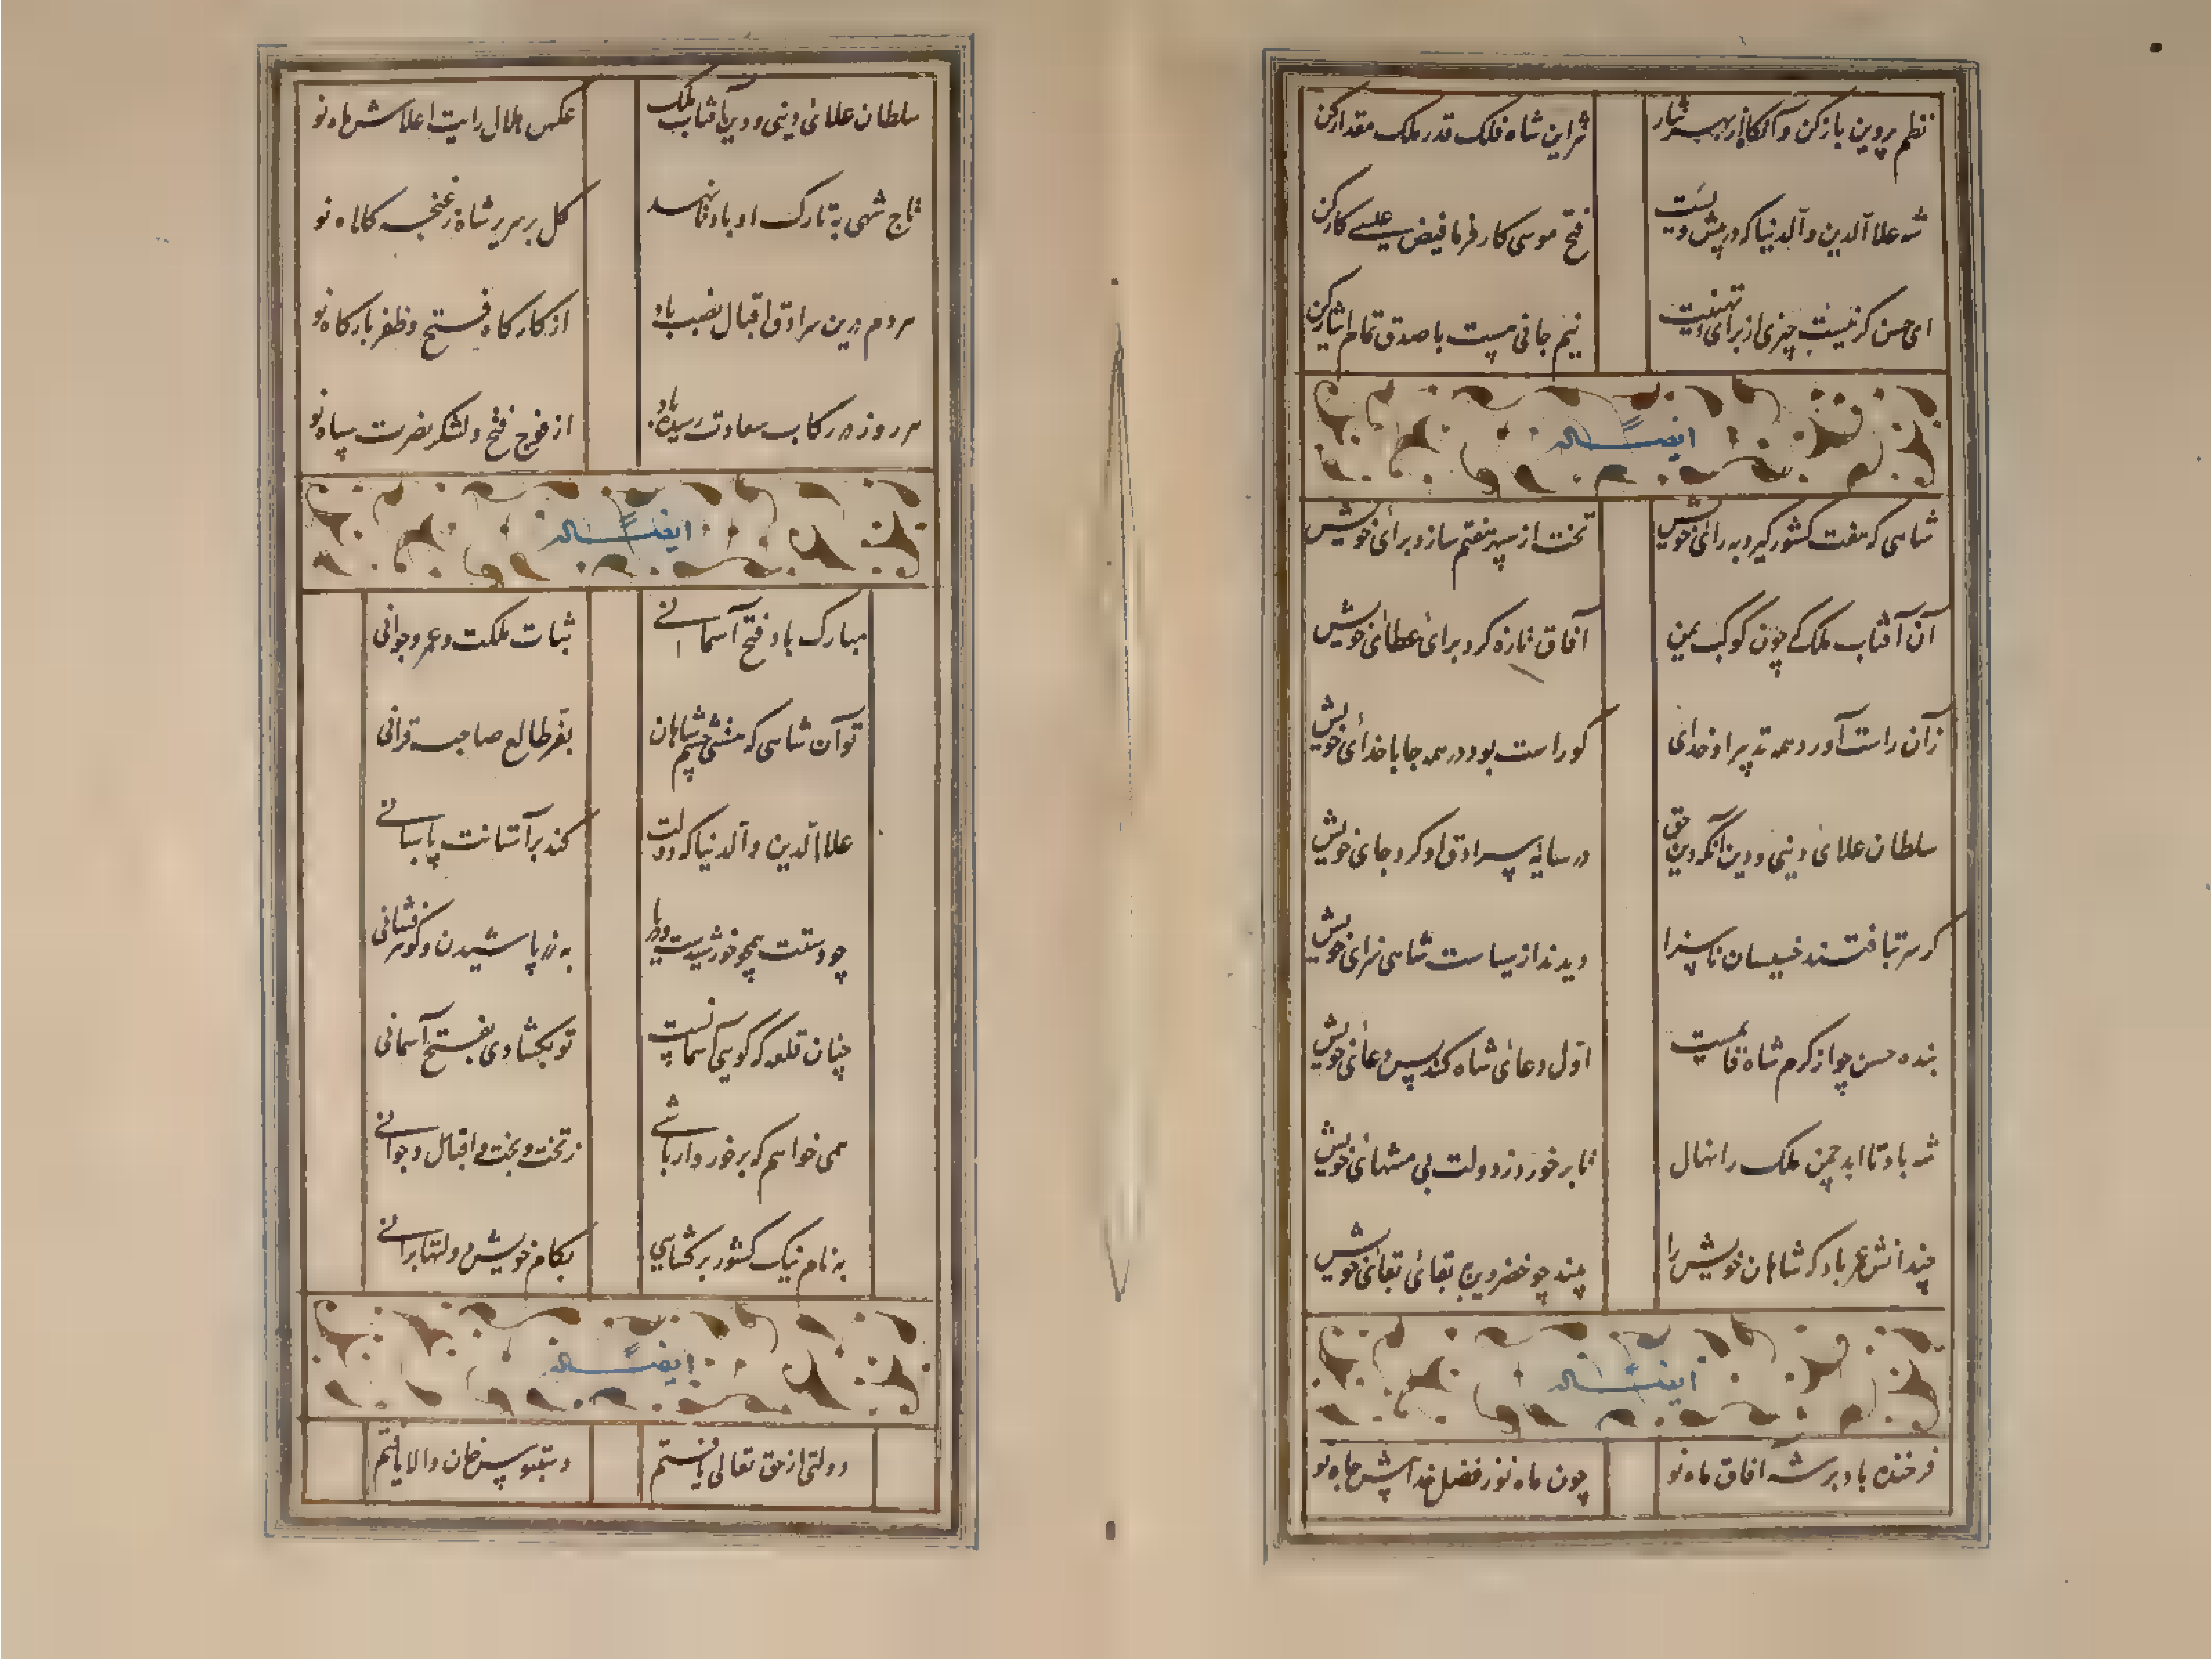 نظم پروین باز کن و آنگاه از بهر نثار
نثر این شاه فلک قدر ملک مقدار کن
شه علاالدین والدنیا که در پیش
فتح موسی کار فرما فیض عیسی کار کن
ای حسن گر نیست چیزی از برای تهنیت
نیم جانی هست با صدق تمام ایثار کن
ایضاً له
شاهی که هفت کشور گیرد به رای خویش
تخت از سپهر هفتم سازد برای خویش
آن آفتاب ملک که چون کوکب یمن
آفاق تازه کرد برای عطای خویش
زان راست آورد همه تدبیر او خدای
کو راست بود در همه جا با خدای خویش
سلطان علای دنیی و دین آنکه دین حق
در سایه سرادق او کرد جای خویش
گر سر بتافتند خسیسان ناسزا
دیدند از سیاست شاهی سزای خویش
بنده حسن چو از کرم شاه
اول دعای شاه کند پس دعای خویش
شه باد تا ابد چمن ملک را نهال
تا بر خورد ز دولت بی منتهای خویش
چندانش عمر باد که شاهان خویش را
بیند چو خضر دیده بقای بقای خویش
ایضاً له
فرخنده باد بر شه آفاق ماه نو
چون ماه نو ز فضل خداش جاه نو
سلطان علای دنیی و دین آفتاب ملک
عکس هلال رایت اعلاش ماه نو
تاج شهی به تارک او باد تا نهد
گل بر سریر شاه ز غنچه کلاه نو
هر دم درین سرادق اقبال نصب باد
از کارگاه فتح و ظفر بارگاه نو
هر روز در رکاب سعادت رسیده باد
از فوج فتح و لشکر نصرت سپاه نو
ایضاً له
مبارک باد فتح آسمانی
ثبات ملکت و عمر و جوانی
تو آن شاهی که منشی چشم شاهان
بفر طالع صاحب قرانی
علاالدین والدنیا که دولت
کند بر آستانت پاسبانی
چو دستت همچو خورشیدست و دریا
به زر پاشیدن و گوهر فشانی
چنان قلعه که گویی آسمانست
تو بگشادی بفتح آسمانی
همی خواهم که برخوردار باشی
ز تخت و بخت و اقبال و جوانی
به نام نیک کشور بر گشایی
بکام خویش دولتها برانی
ایضاً له
دولتی از حق تعالی یافتم
دستبوس خان والا یافتم